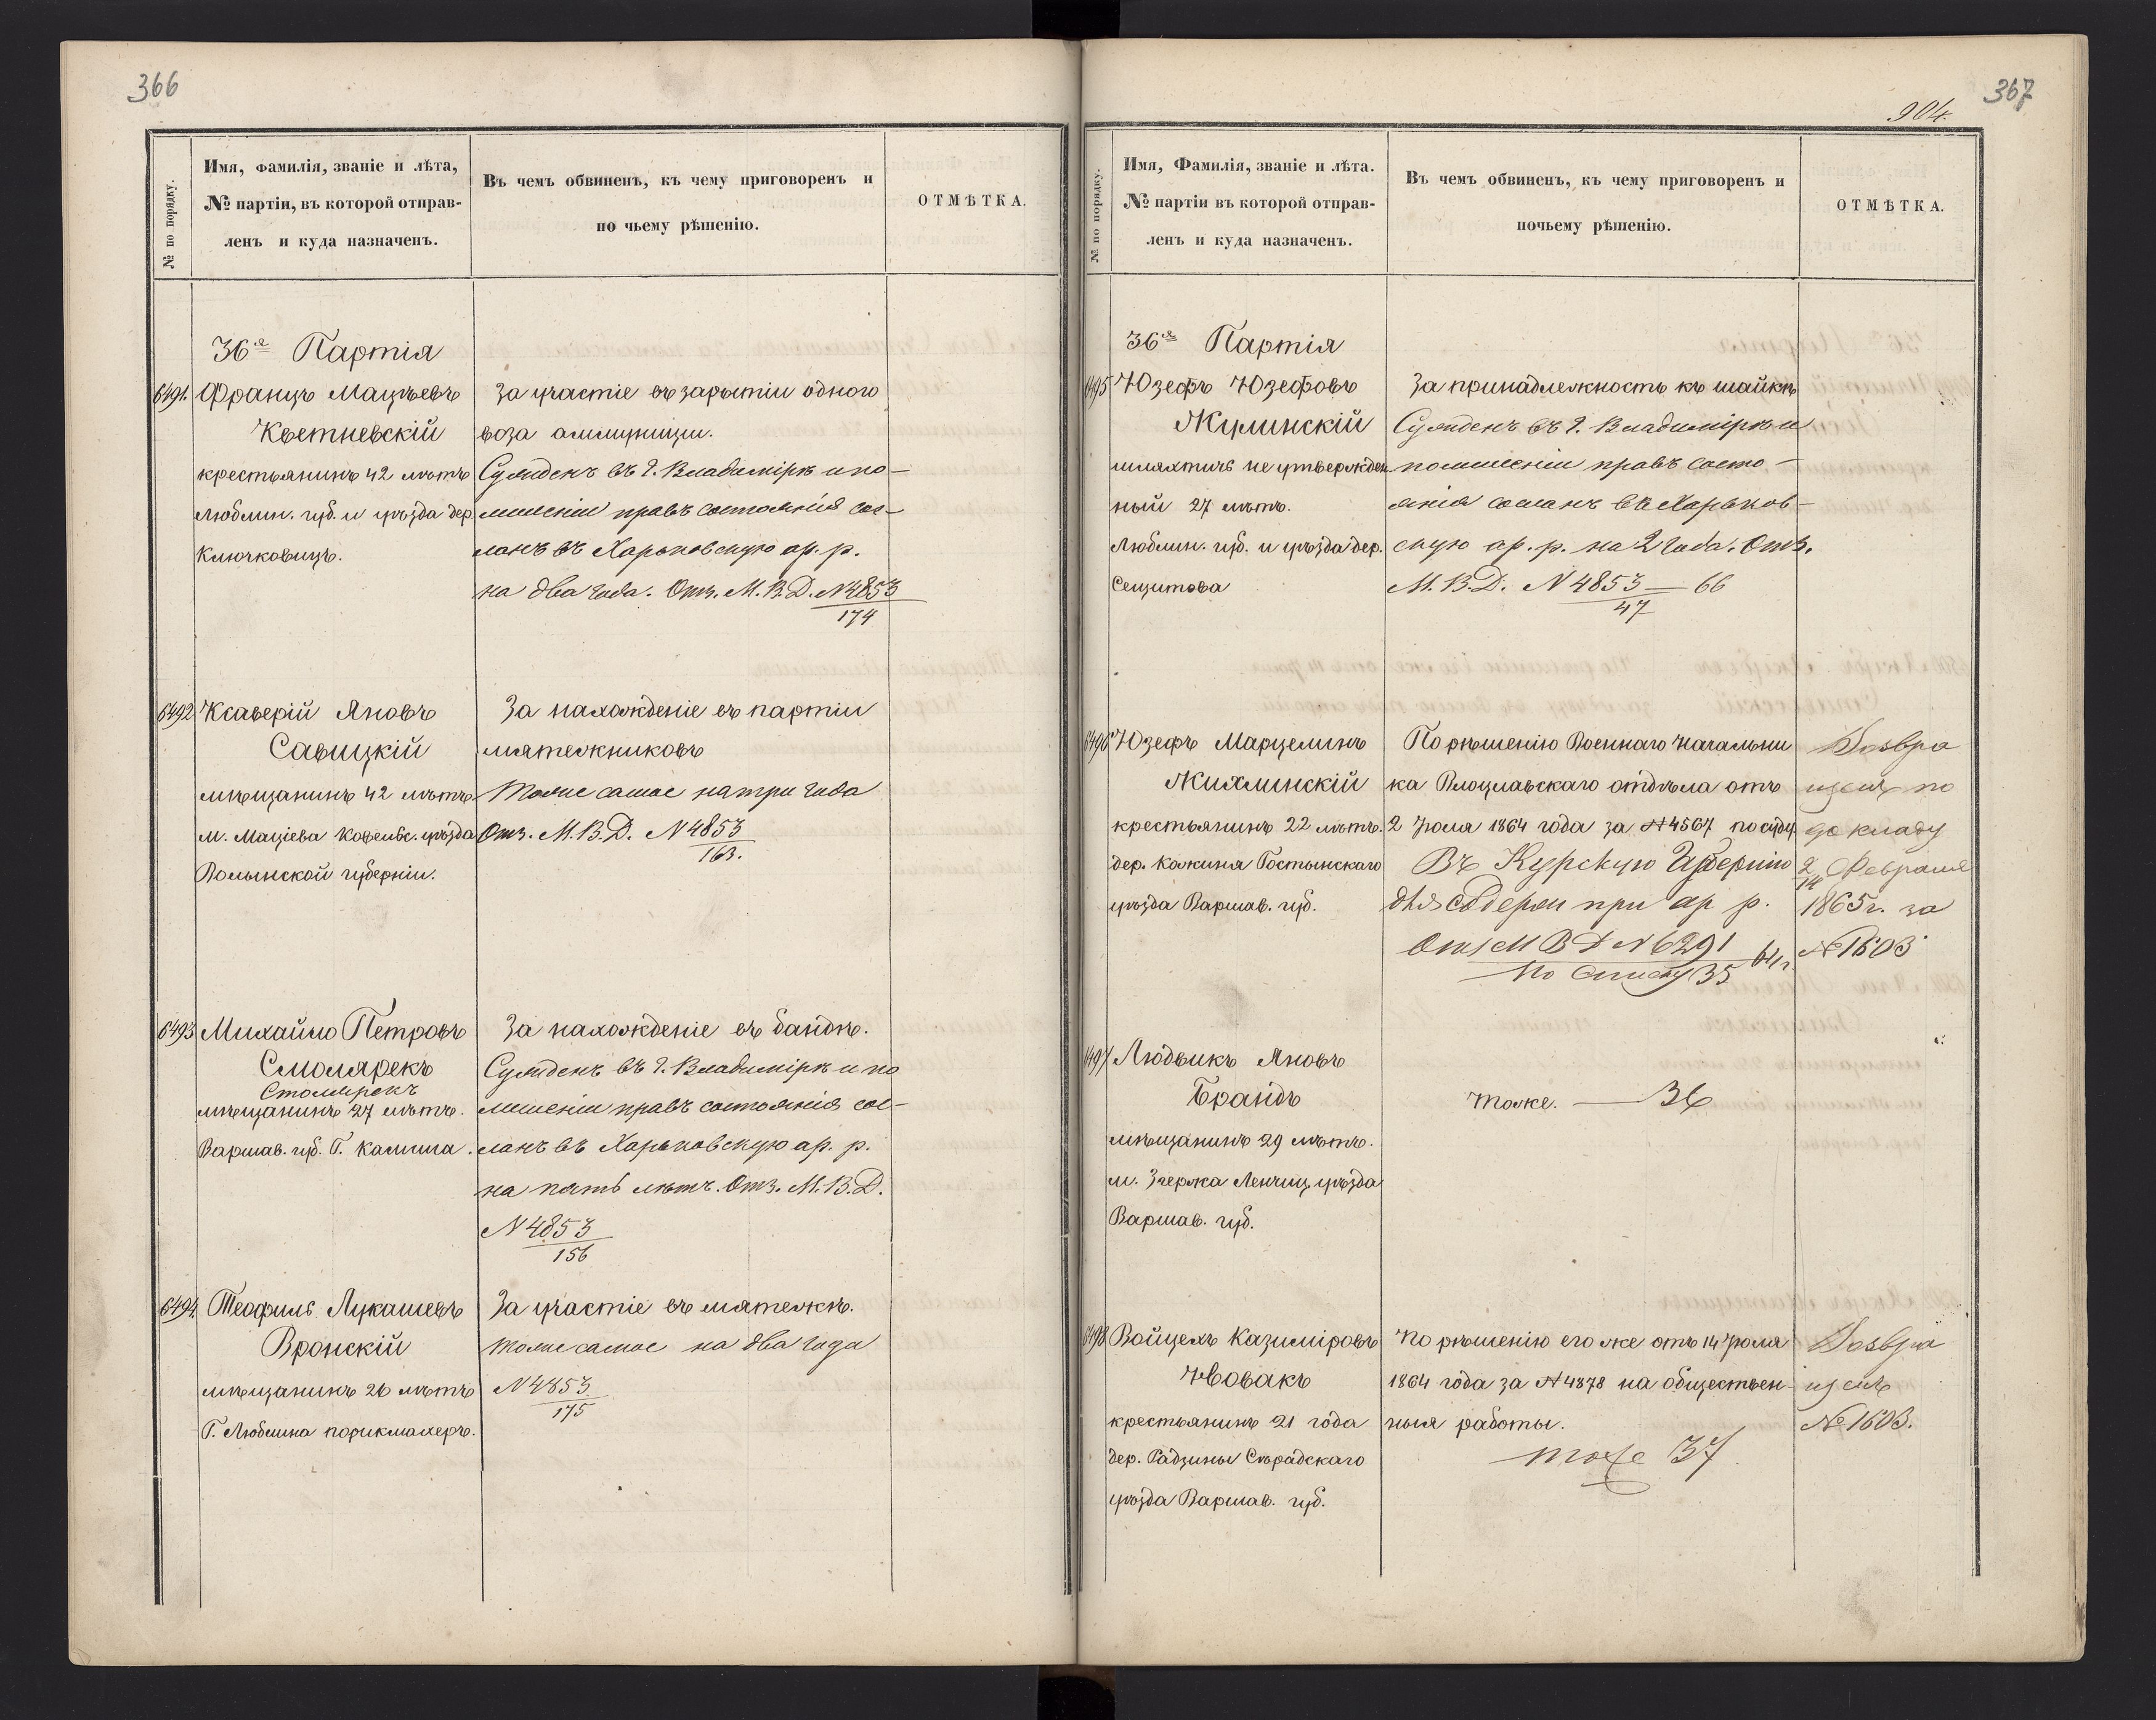 366
№ по порядку.
Имя, фамилія, званіе и лѣта,
№ партіи, въ которой отправ-
ленъ и куда назначенъ.
Въ чемъ обвиненъ, къ чему приговоренъ и
по чьему рѣшенію.
ОТМѢТКА.
36я Партія
6491.
Францъ Мацѣевъ
Кветневскій
крестьянинъ 42 лѣтъ
Люблин. губ. и уѣзда дер.
Ключковицъ.
За участіе въ зарытіи одного
воза аммуниціи.
Сужденъ въ г. Владимірѣ и по-
лишеніи правъ состоянія сос-
ланъ въ Харьковскую ар. р.
на два года. Отз. М. В. Д. N 4853
174
6492
Ксаверій Яновъ
Савицкій
мѣщанинъ 42 лѣтъ
м. Маціева Ковельс. уѣзда
Волынской губерніи.
За нахожденіе въ партіи
мятежниковъ
Тоже самое на три года
Отз. М. В. Д. N 4853
163.
6493
Михайло Петровъ
Смолярекъ
Столярекъ
мѣщанинъ 27 лѣтъ.
Варшав. губ. Г. Калиша.
За нахожденіе въ бандѣ.
Сужденъ въ г. Владимірѣ и по
лишеніи правъ состоянія сос-
ланъ въ Харьковскую ар. р.
на пять лѣтъ. Отз. М. В. Д.
N 4853
156
6494.
Теофиль Лукашевъ
Вронскій
мѣщанинъ 26 лѣтъ
Г. Люблина парикмахеръ.
За участіе въ мятежѣ.
Тоже самое на два года
N 4853
175
367
904.
№ по порядку.
Имя, Фамилія, званіе и лѣта.
№ партіи въ которой отправ-
ленъ и куда назначенъ.
Въ чемъ обвиненъ, къ чему приговоренъ и
почьему рѣшенію.
ОТМѢТКА.
36я Партія
6495
Юзефъ Юзефовъ
Жулинскій
шляхтичъ не утвержден
ный 27 лѣтъ.
Люблин. губ. и уѣзда дер.
За принадлежность къ шайкѣ
Сужденъ въ г. Владимірѣ и
по лишеніи правъ состо-
янія сосланъ въ Харьков-
скую ар. р. на 2 года. Отз.
М. В. Д. N 4853 — 66
47
6496
Юзефъ Марцелинъ
Жихлинскій
крестьянинъ 22 лѣтъ.
дер. Гостынскаго
уѣзда Варшав. губ.
По рѣшенію Военнаго Начальни
ка Влоцлавскаго отдѣла отъ
2 Іюля 1864 года за № 4567 по суду
Въ Курскую Губернію
для содерж при ар р.
Отз М В Д N 6291 64 г.
по списку 35
Возвра
щенъ по
докладу
2/14 Февраля
1865 г. за
№ 1603
6497
Людвикъ Яновъ
Брандъ
мѣщанинъ 29 лѣтъ.
м. Згержа Ленчиц. уѣзда
Варшав. губ.
Тоже. — 36
6498
Войцехъ Казиміровъ
Новакъ
крестьянинъ 21 года
дер. Радзины Сѣрадскаго
уѣзда Варшав. губ.
По рѣшенію его же отъ 14 Іюля
1864 года за № 4878 на обществен-
ныя работы.
тоже 37
Возвра
щенъ
№ 1603.